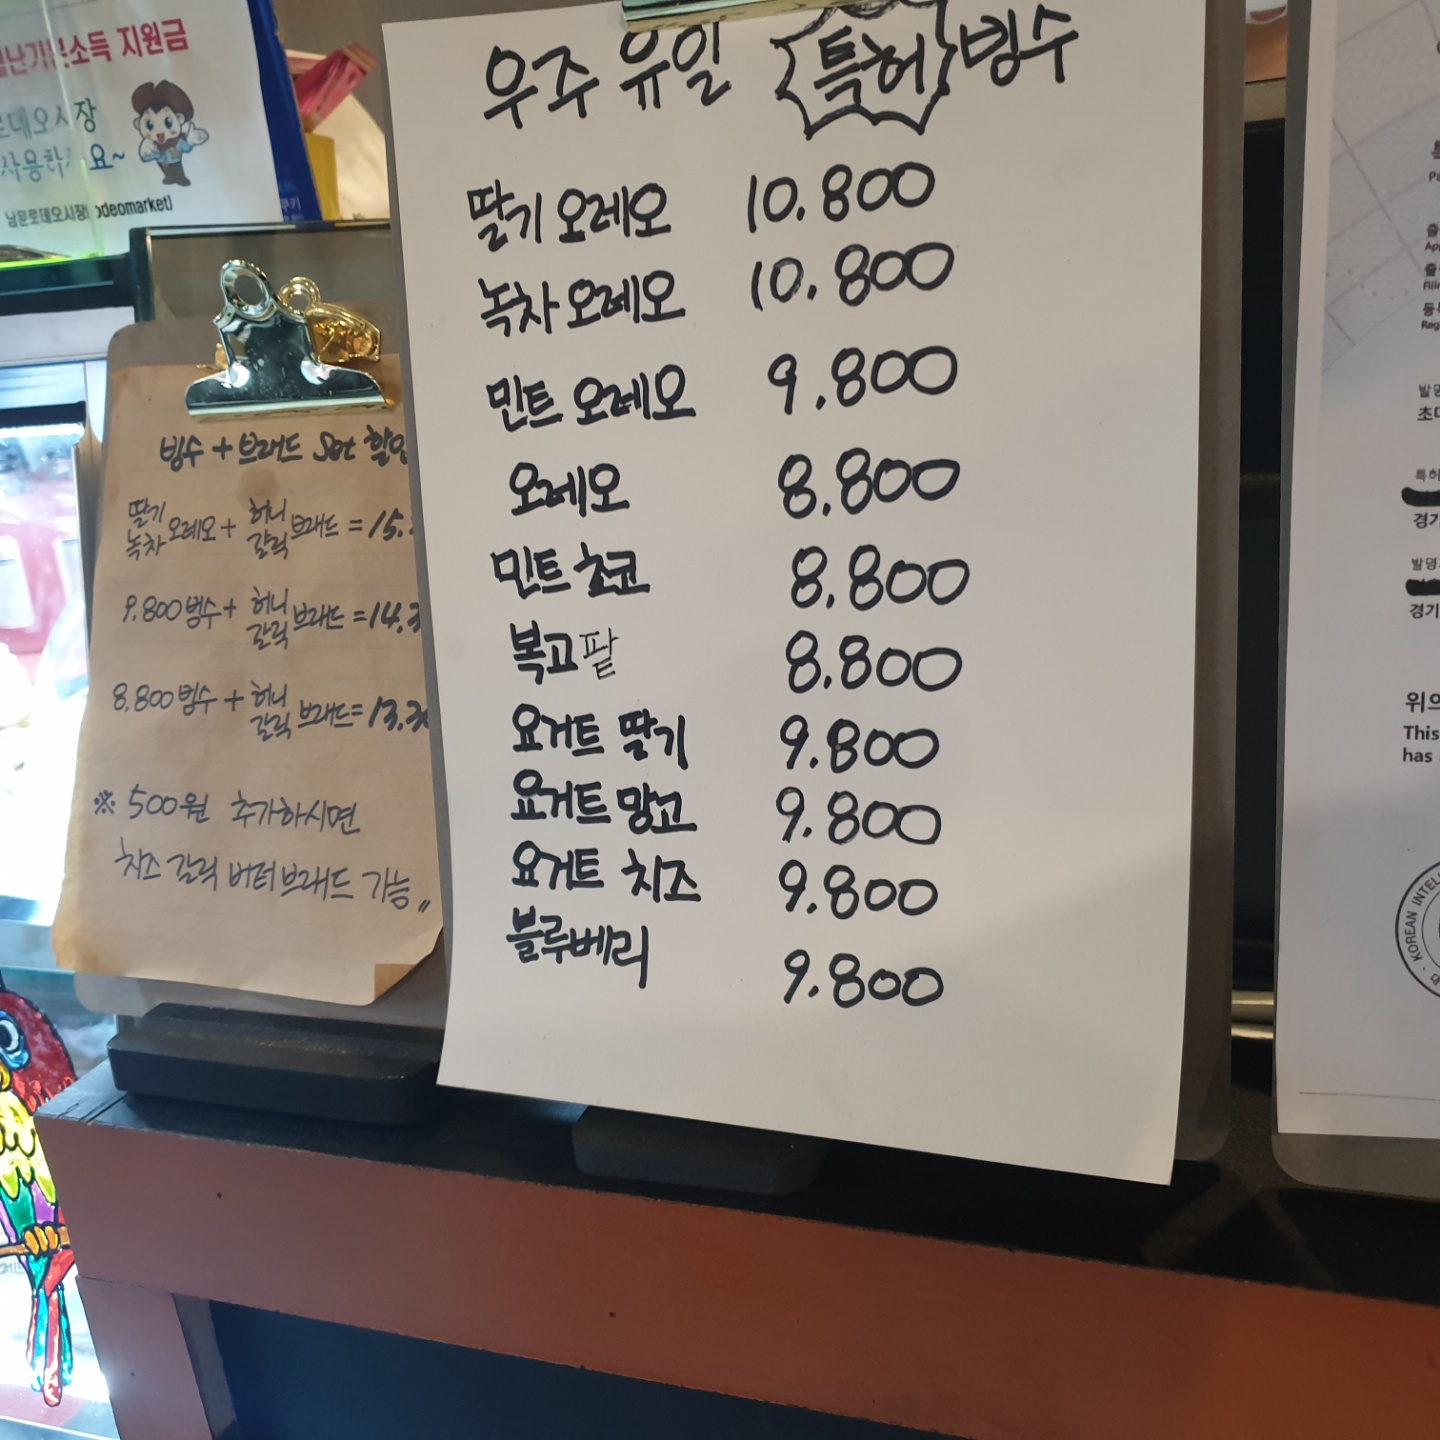 재난기본소득 지원금
로데오시장
사용하세요~
남문로데오시장
odeomarket)
빙수 + 브래드 Set 할인
딸기
녹차 오레오 + 허니
갈릭 브래드 = 15.
9.800 빙수 + 허니
갈릭 브래드 = 14.3
8.800 빙수 + 허니
갈릭 브래드 = 13.3
※ 500원 추가하시면
치즈 갈릭 버터브래드 가능"
우주 유일 특허 빙수
딸기 오레오 10.800
녹차 오레오 10.800
민트 오레오 9.800
오레오 8.800
민트 초코 8.800
복고팥 8.800
요거트 딸기 9.800
요거트 망고 9.800
요거트 치즈 9.800
블루베리 9.800
발명
초
특허
경기
발명
경기
위의
This
has
KOREAN INTELL